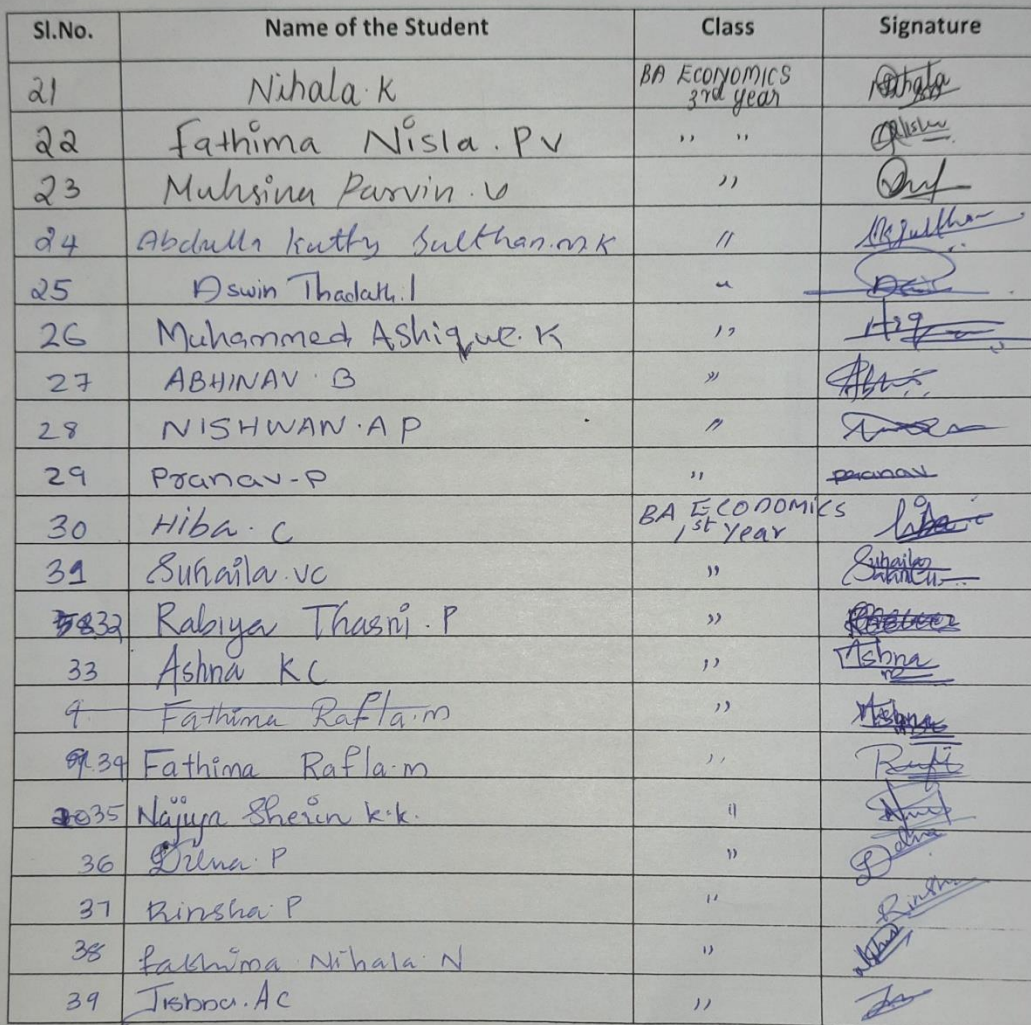 Sl.No. Name of the Student Class Signature
21 Nihala. K BA ECONOMICS 3rd year Nihala
22 Fathima Nisla. P V ,, ,,
23 Muhsina Parvin. V ,,
24 Abdulla Kutty Sulthan. M.K ,,
25 Aswin Thadath. I ,,
26 Muhammed Ashique. K ,,
27 ABHINAV. B ,,
28 NISHWAN. A P ,,
29 Pranav - P ,, pranav
30 Hiba. C BA ECONOMICS 1st Year
31 Suhaila. VC ,, Suhaila
32 Rabiya Thasni. P ,,
33 Ashna K C ,, Ashna
9 Fathima Rafla. m ,,
34 Fathima Rafla. m ,,
35 Najiya Sherin k.k. ,,
36 Dilna. P ,, Dilna
37 Rinsha. P ,, Rinsha
38 Fathima Nihala. N ,,
39 Jisbna. A C ,,